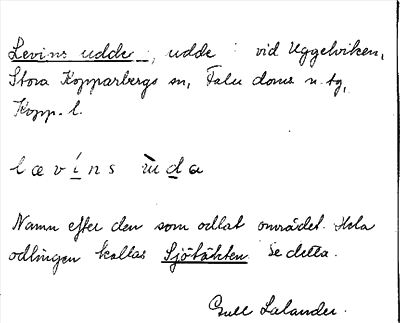 Levins udde, udde vid Uggelviken,
Stora Kopparbergs sn, Falu doms n. tg,
Kopp. l.
lævins uda
Namn efter den som odlat området. Hela
odlingen kallas Sjötäkten. Se detta.
Gull Lalander.